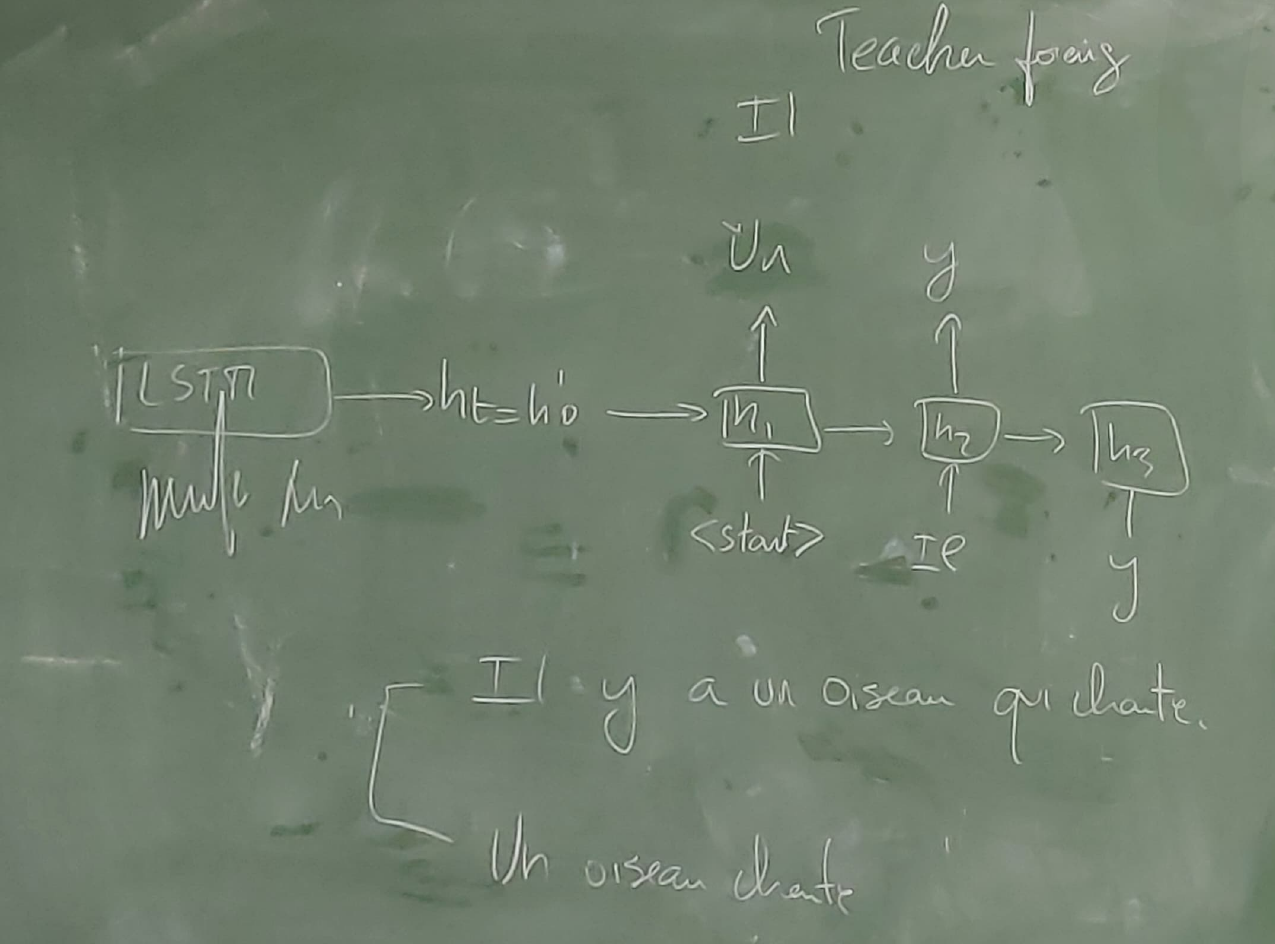 Teacher forcing
Il
Un y
LSTM → ht = h'0 → h1 → h2 → h3
<start> Il y
Il y a un oiseau qui chante.
Un oiseau chante